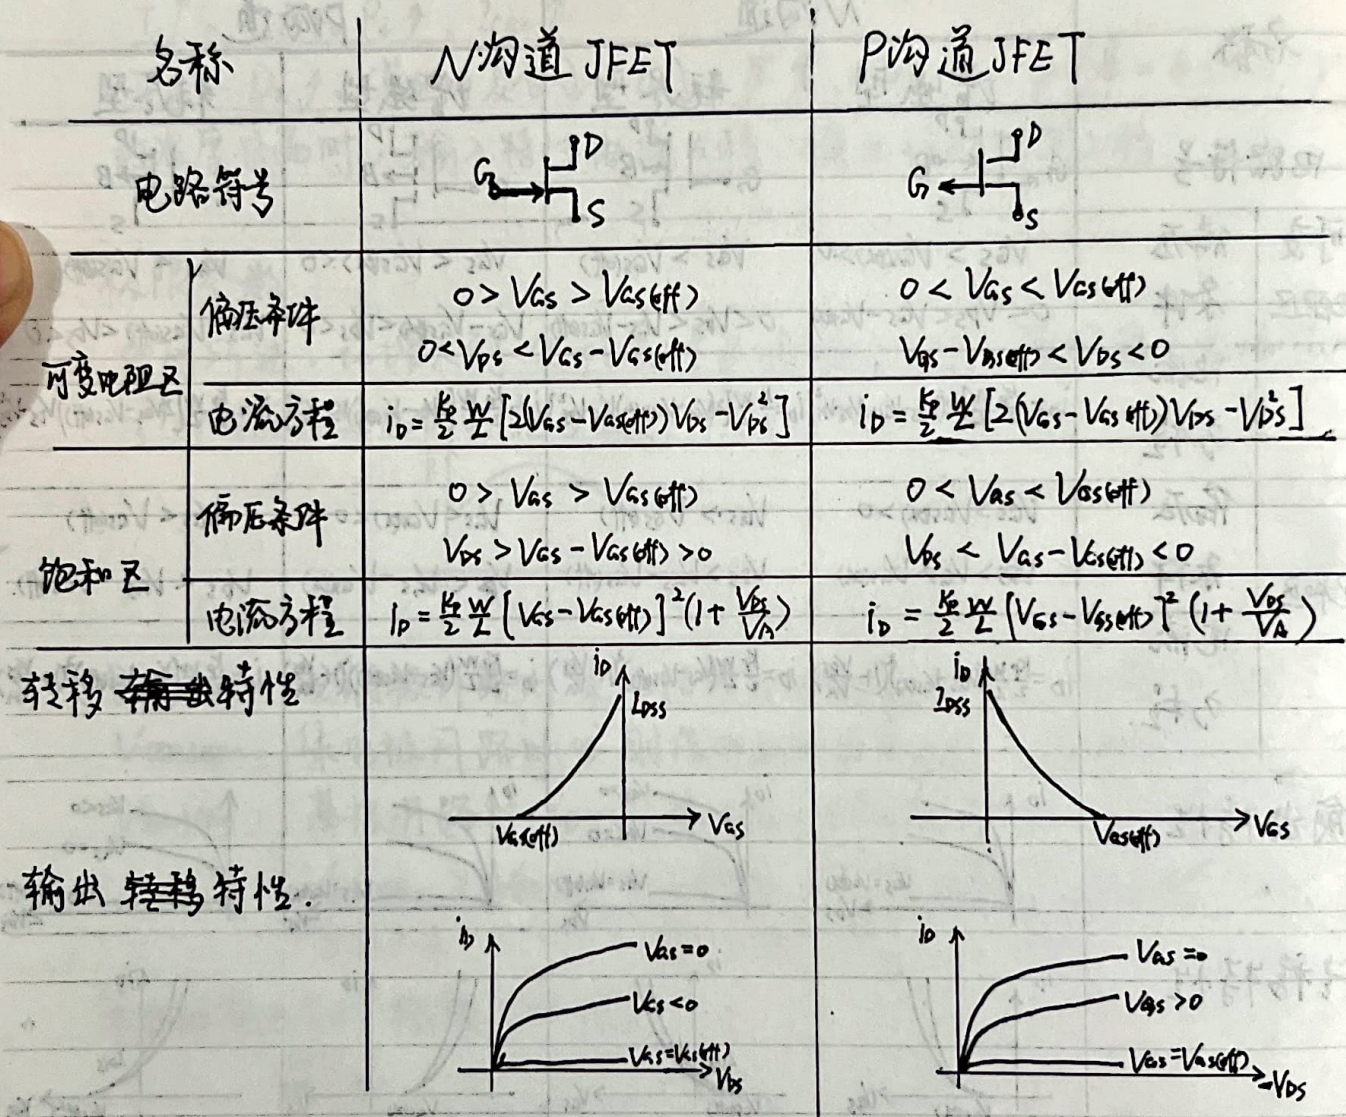 名称 N沟道JFET P沟道JFET
电路符号 G D S G D S
可变电阻区 偏压条件 0 > VGS > VGS(off) 0 < VGS < VGS(off)
0 < VDS < VGS - VGS(off) VGS - VGS(off) < VDS < 0
电流方程 iD = Kp/2 W/L [2(VGS - VGS(off))VDS - VDS²] iD = Kp/2 W/L [2(VGS - VGS(off))VDS - VDS²]
饱和区 偏压条件 0 > VGS > VGS(off) 0 < VGS < VGS(off)
VDS > VGS - VGS(off) > 0 VDS < VGS - VGS(off) < 0
电流方程 iD = Kp/2 W/L [VGS - VGS(off)]² (1 + VDS/VA) iD = Kp/2 W/L [VGS - VGS(off)]² (1 + VDS/VA)
转移 输出 特性 iD IDSS VGS(off) VGS iD IDSS VGS(off) VGS
输出 转移 特性.
iD VGS = 0 iD VGS = 0
VGS < 0 VGS > 0
VGS = VGS(off) VDS VGS = VGS(off) -VDS